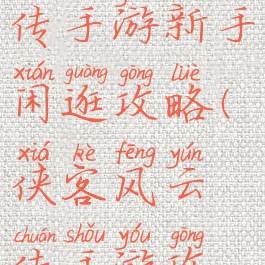 传手游新手
xián guàng gōng lüè
闲逛攻略(
xiá kè fēng yún
侠客风云
chuán shǒu yóu gōng
传手游攻